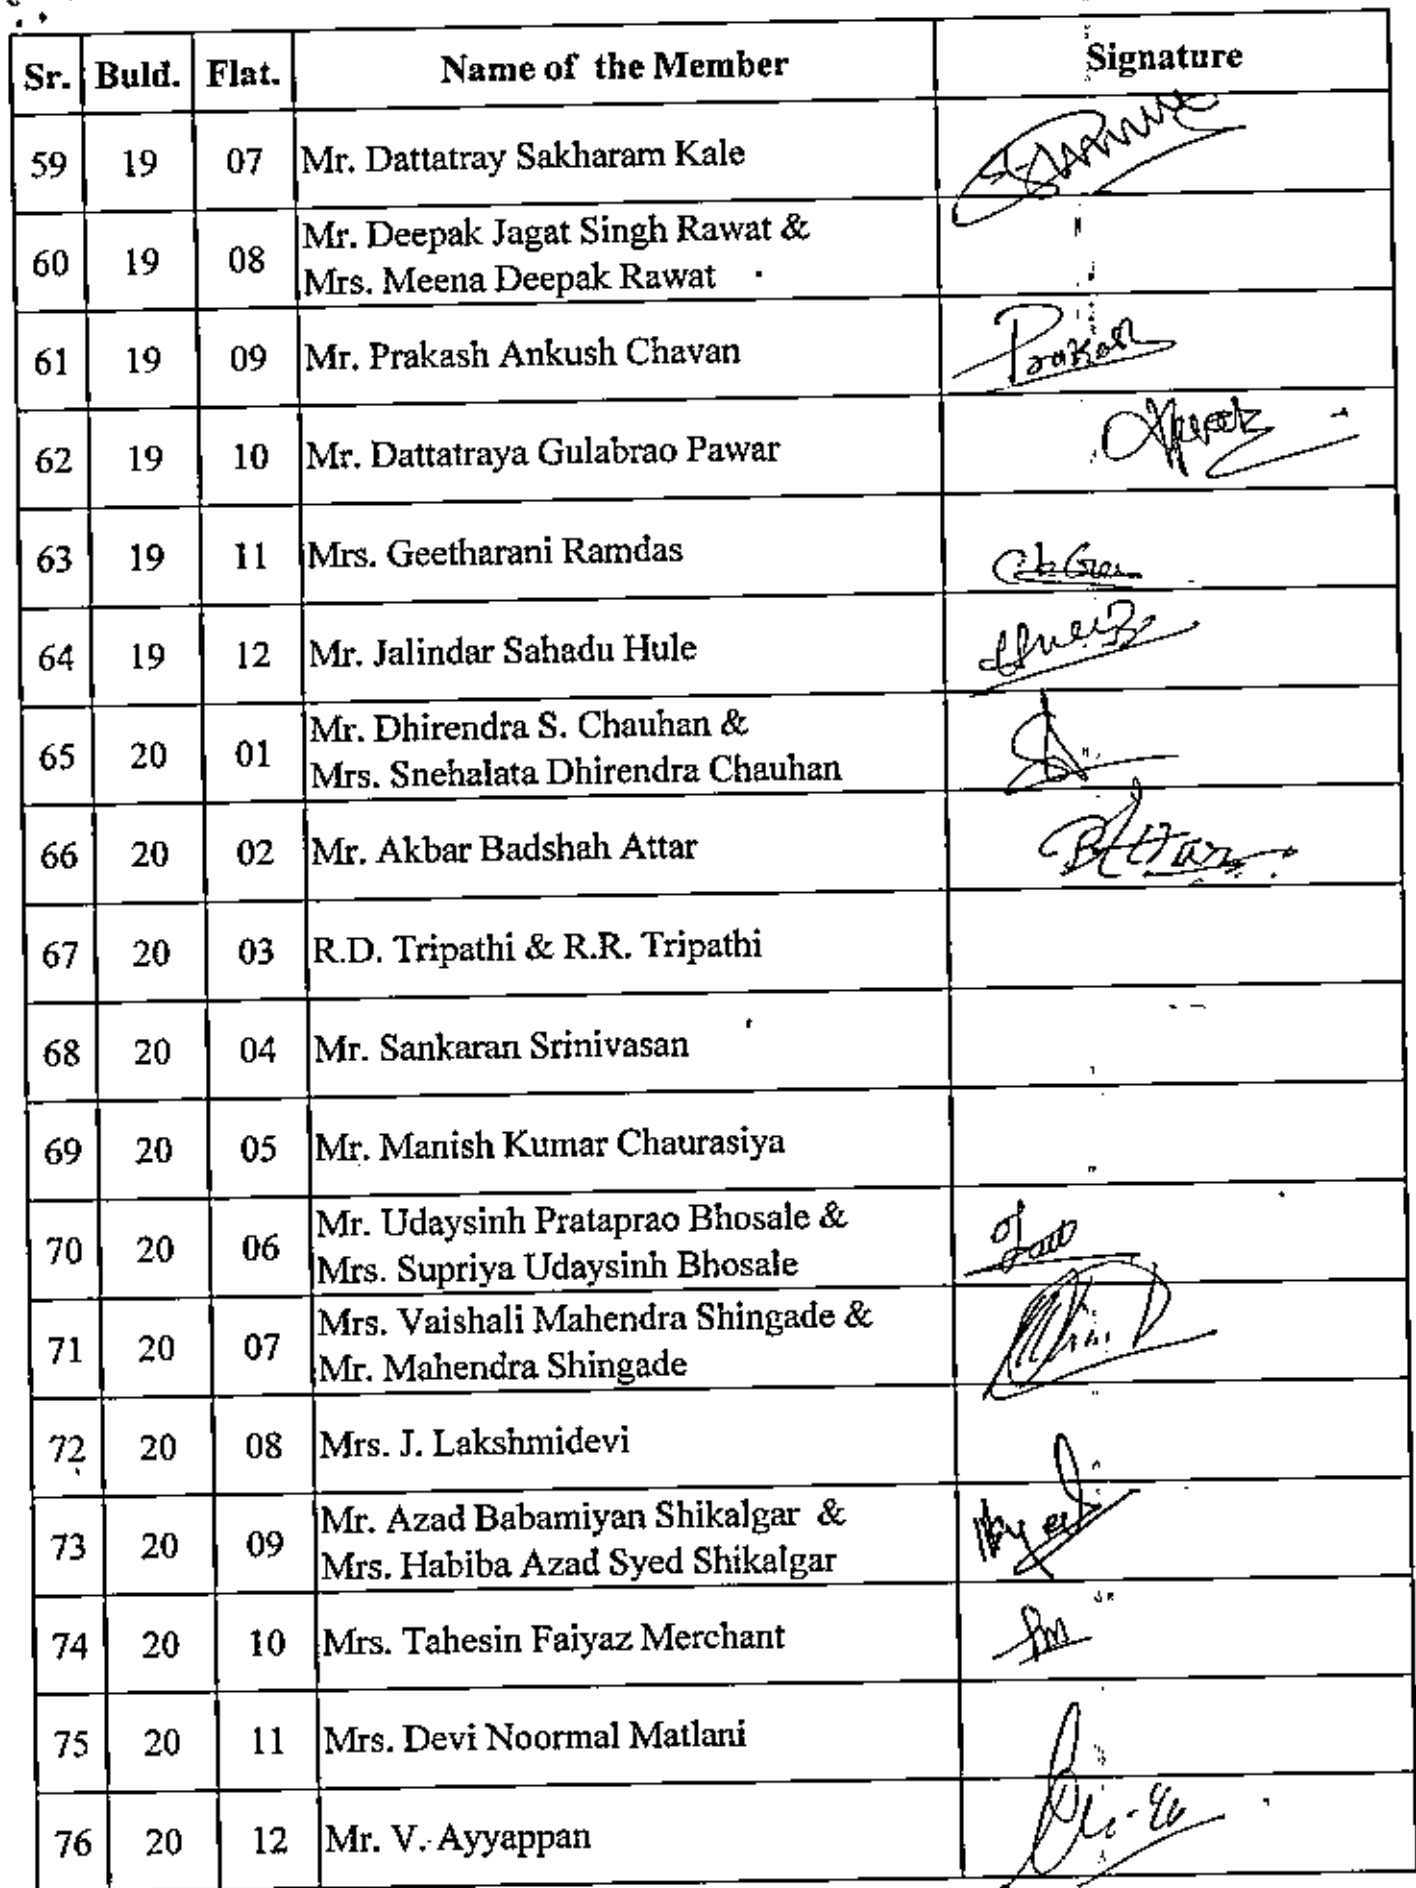 Sr. Buld. Flat. Name of the Member Signature
59 19 07 Mr. Dattatray Sakharam Kale
60 19 08 Mr. Deepak Jagat Singh Rawat &
Mrs. Meena Deepak Rawat
61 19 09 Mr. Prakash Ankush Chavan Prakash
62 19 10 Mr. Dattatraya Gulabrao Pawar
63 19 11 Mrs. Geetharani Ramdas
64 19 12 Mr. Jalindar Sahadu Hule
65 20 01 Mr. Dhirendra S. Chauhan &
Mrs. Snehalata Dhirendra Chauhan
66 20 02 Mr. Akbar Badshah Attar
67 20 03 R.D. Tripathi & R.R. Tripathi
68 20 04 Mr. Sankaran Srinivasan
69 20 05 Mr. Manish Kumar Chaurasiya
70 20 06 Mr. Udaysinh Prataprao Bhosale &
Mrs. Supriya Udaysinh Bhosale
71 20 07 Mrs. Vaishali Mahendra Shingade &
Mr. Mahendra Shingade
72 20 08 Mrs. J. Lakshmidevi
73 20 09 Mr. Azad Babamiyan Shikalgar &
Mrs. Habiba Azad Syed Shikalgar
74 20 10 Mrs. Tahesin Faiyaz Merchant
75 20 11 Mrs. Devi Noormal Matlani
76 20 12 Mr. V. Ayyappan